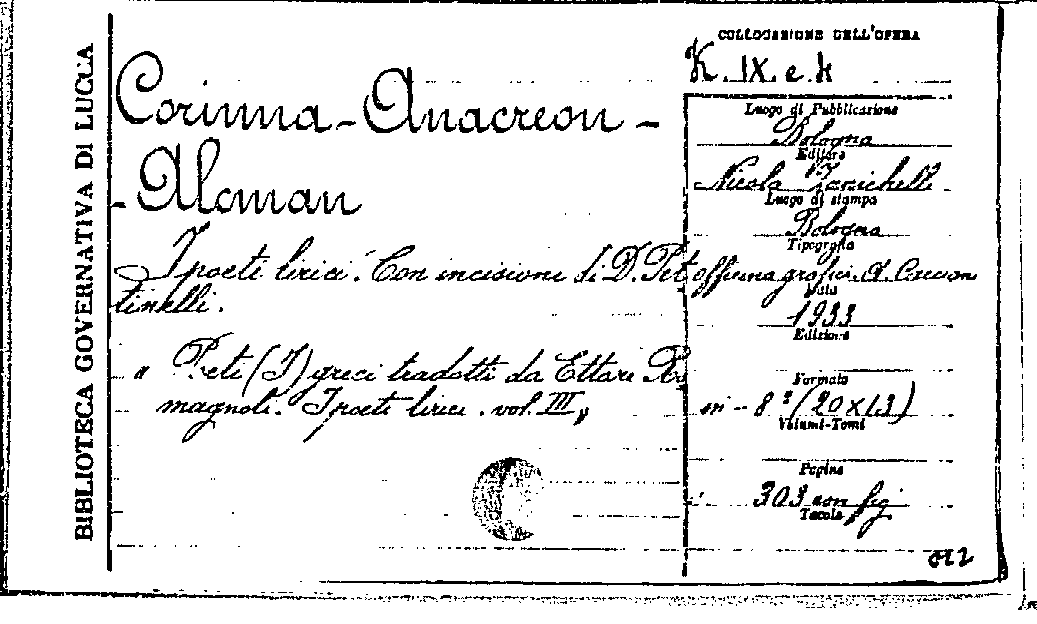 BIBLIOTECA GOVERNATIVA DI LUCCA
COLLOCAZIONE DELL'OPERA
K. IX. e. 4
Corinna - Anacreon -
- Alcman
I poeti lirici. Con incisione di D. Pet
tinelli.
" Poeti (I) greci tradotti da Ettore Ro
magnoli. I poeti lirici. vol. III "
Luogo di Pubblicazione
Bologna
Editore
Nicola Zanichelli
Luogo di stampa
Bologna
Tipografia
officina grafici. A.
Data
1933
Edizione
Formato
in - 8° (20x13)
Volumi-Tomi
Pagine
303 con fig
Tavole